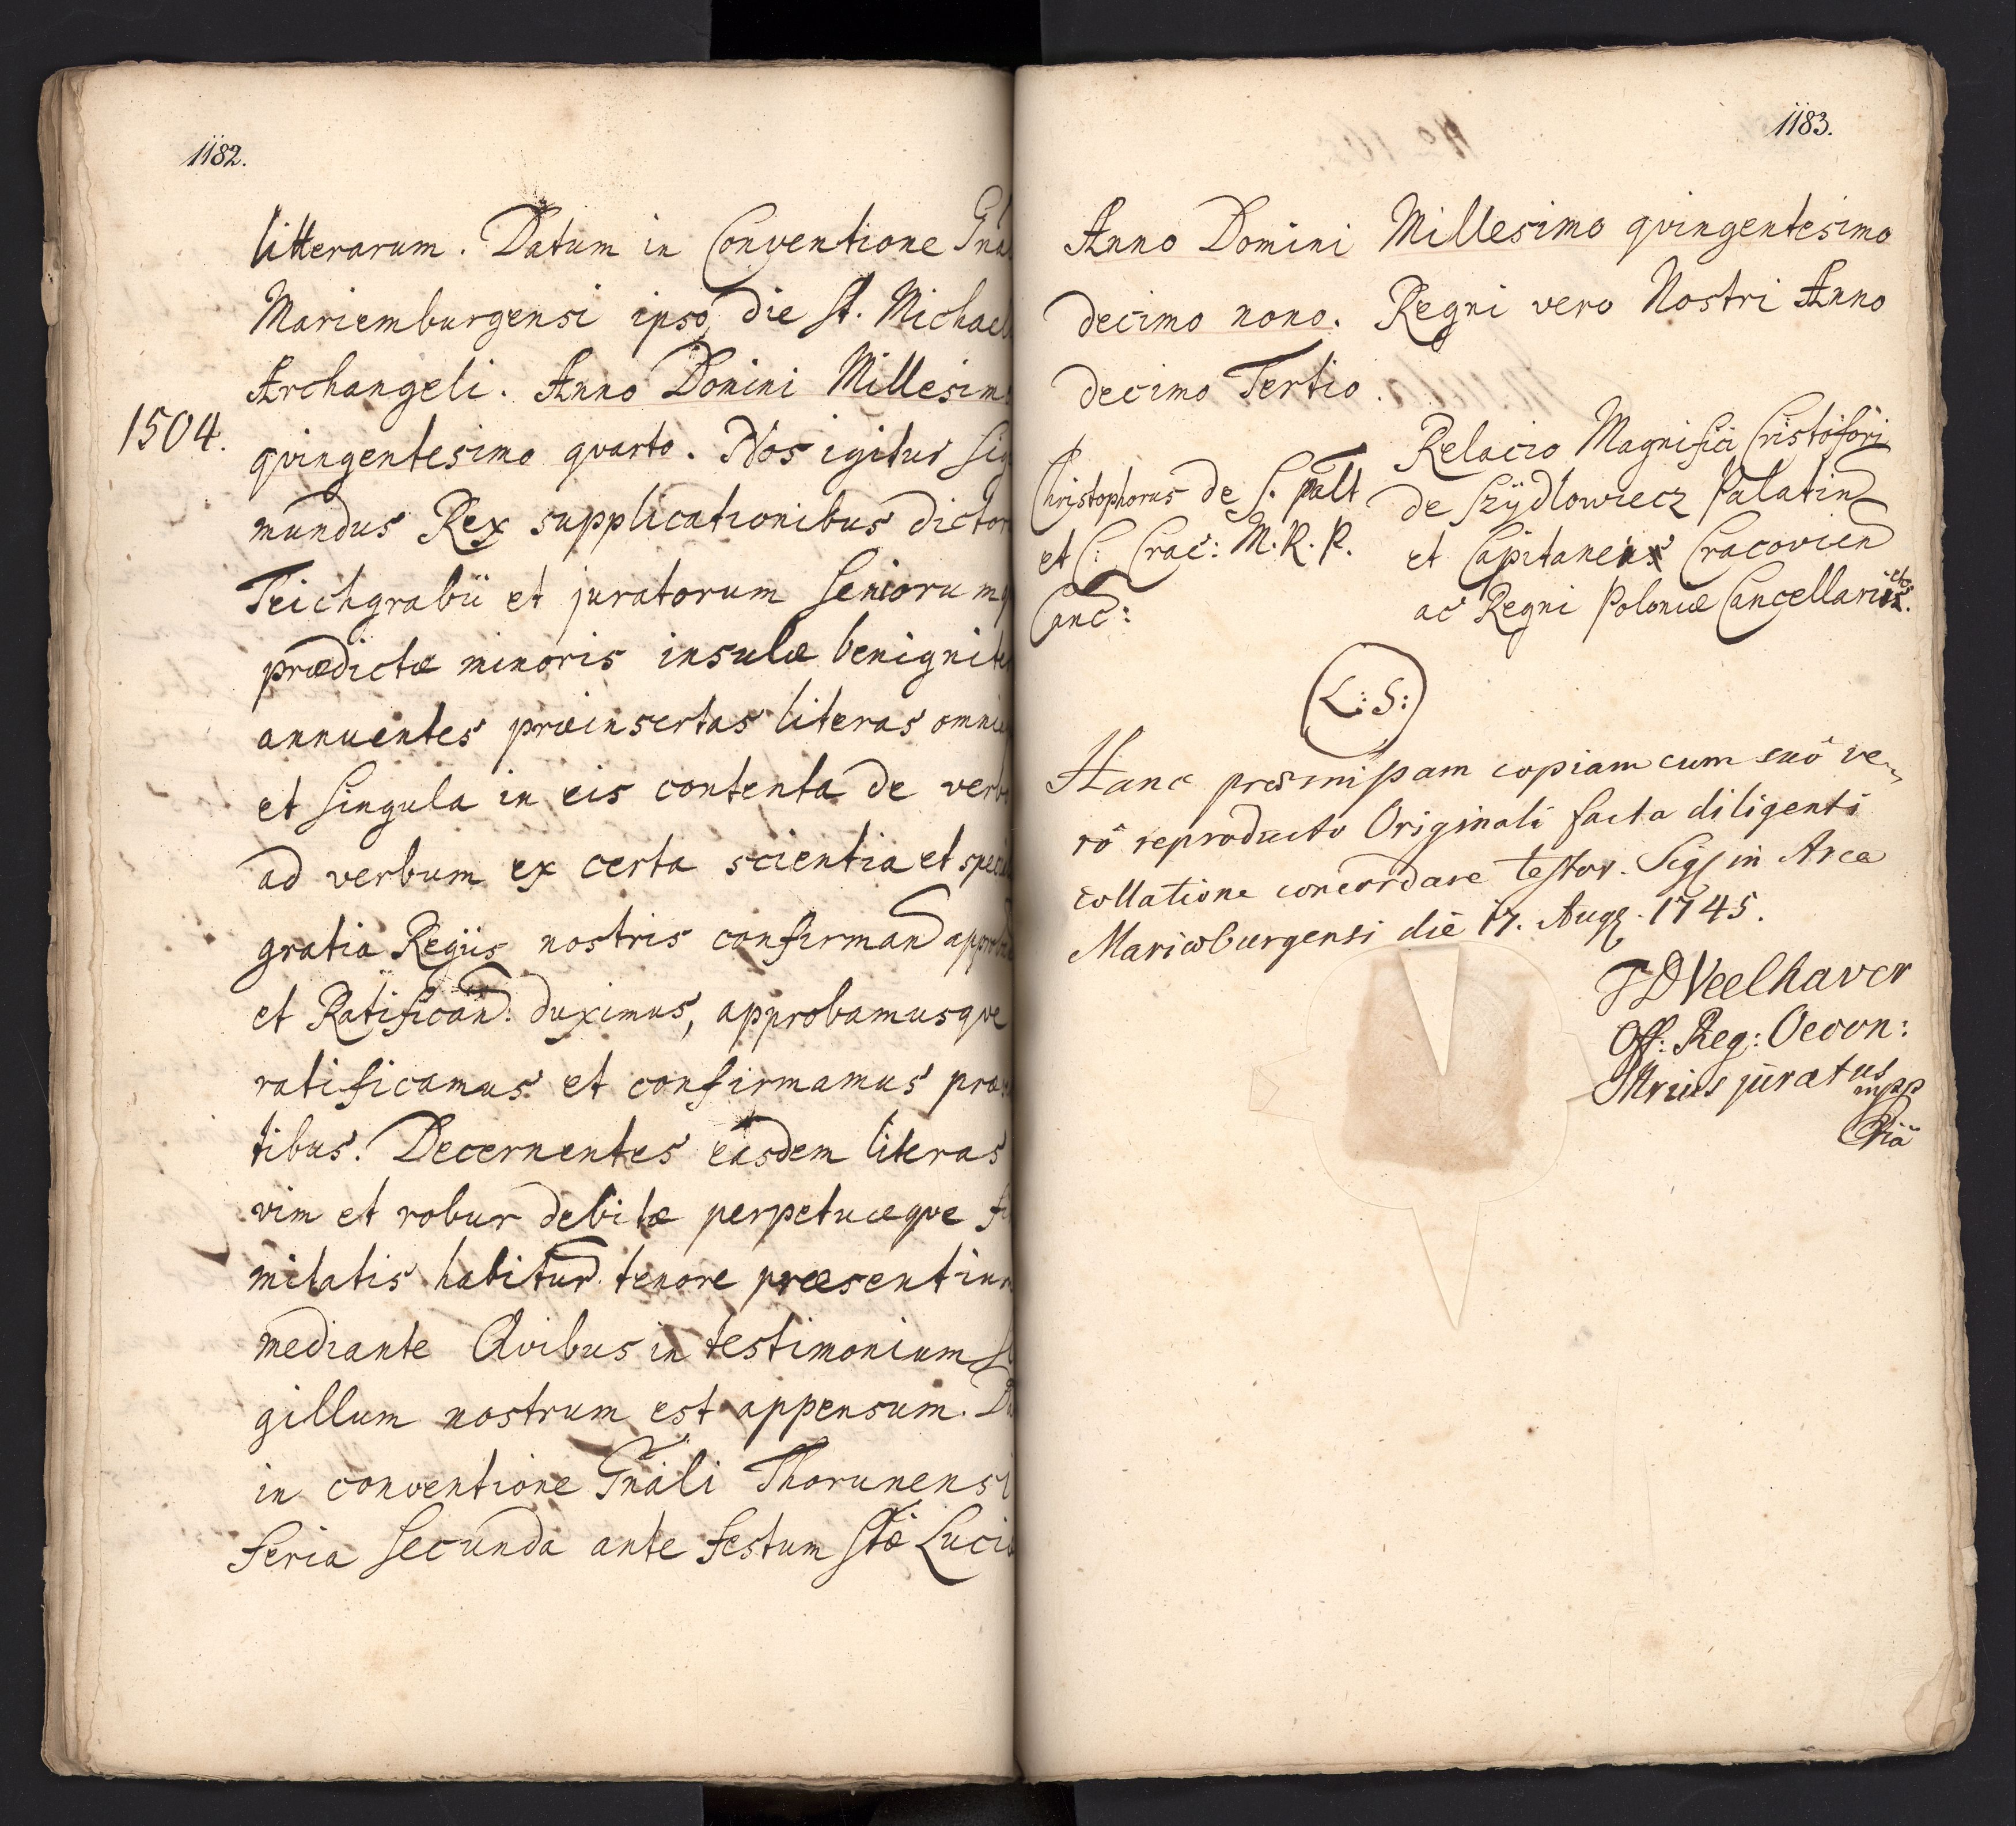 1182.
litterarum. Datum in Conventione Gnal
Mariemburgensi ipso die St. Michaeli
Archangeli. Anno Domini Millesimo
1504.
qvingentesimo qvarto. Nos igitur Sig
mundus Rex supplicationibus dictor
Teichgrabii et juratorum Seniorumq
prædictæ minoris insulæ benignite
annuentes præinsertas literas omnia
et Singula in eis contenta de verbo
ad verbum ex certa scientia et speciali
gratia Regiis nostris confirmand approband
et Ratifican̄d: duximus, approbamusqve
ratificamus et confirmamus præsen
tibus. Decernentes easdem literas
vim et robur debitæ perpetuæqve fir
mitatis habitur tenore præsentium
mediante Qvibus in testimonium Si
gillum nostrum est appensum. Da
in conventione Gnāli Thorunensi
Feria Secunda ante Festum Stæ Luciæ
1183.
Anno Domini Millesimo qvingentesimo
decimo nono. Regni vero Nostri Anno
decimo Tertio.
Christophorus de S. palt
et C: Crac: M.R.P.
Canc:
Relacio Magnifici Cristofori
de Szÿdlowiecz Palatin
et Capitaneus Cracovien
ac Regni Poloniæ Cancellarii etc.
L:S:
Hanc præmissam copiam cum suô ve-
rô reproducto Originali facta diligenti
collatione concordare testor. Sig in Arce
Mariæburgensi die 17. Aug. 1745.
JDVeelhaver
Off: Reg: Oecon:
Ntrius juratus
mpp